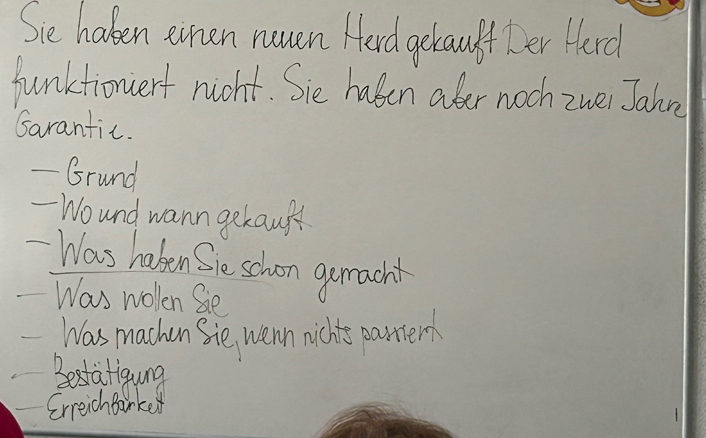 Sie haben einen neuen Herd gekauft Der Herd
funktioniert nicht. Sie haben aber noch zwei Jahre
Garantie.
— Grund
— Wo und wann gekauft
— Was haben Sie schon gemacht
— Was wollen Sie
— Was machen Sie, wenn nichts passiert
— Bestätigung
— Erreichbarkeit